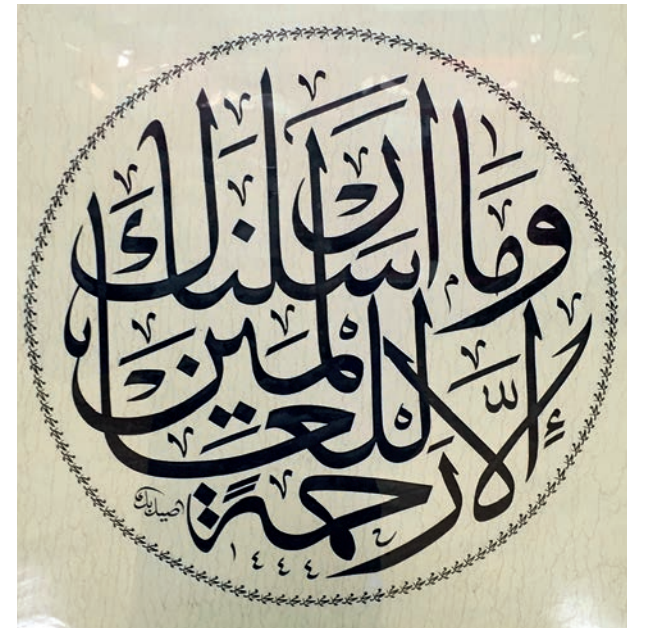 وَمَا أَرْسَلْنَٰكَ
إِلَّا رَحْمَةً
لِلْعَالَمِينَ
١٤٤٤